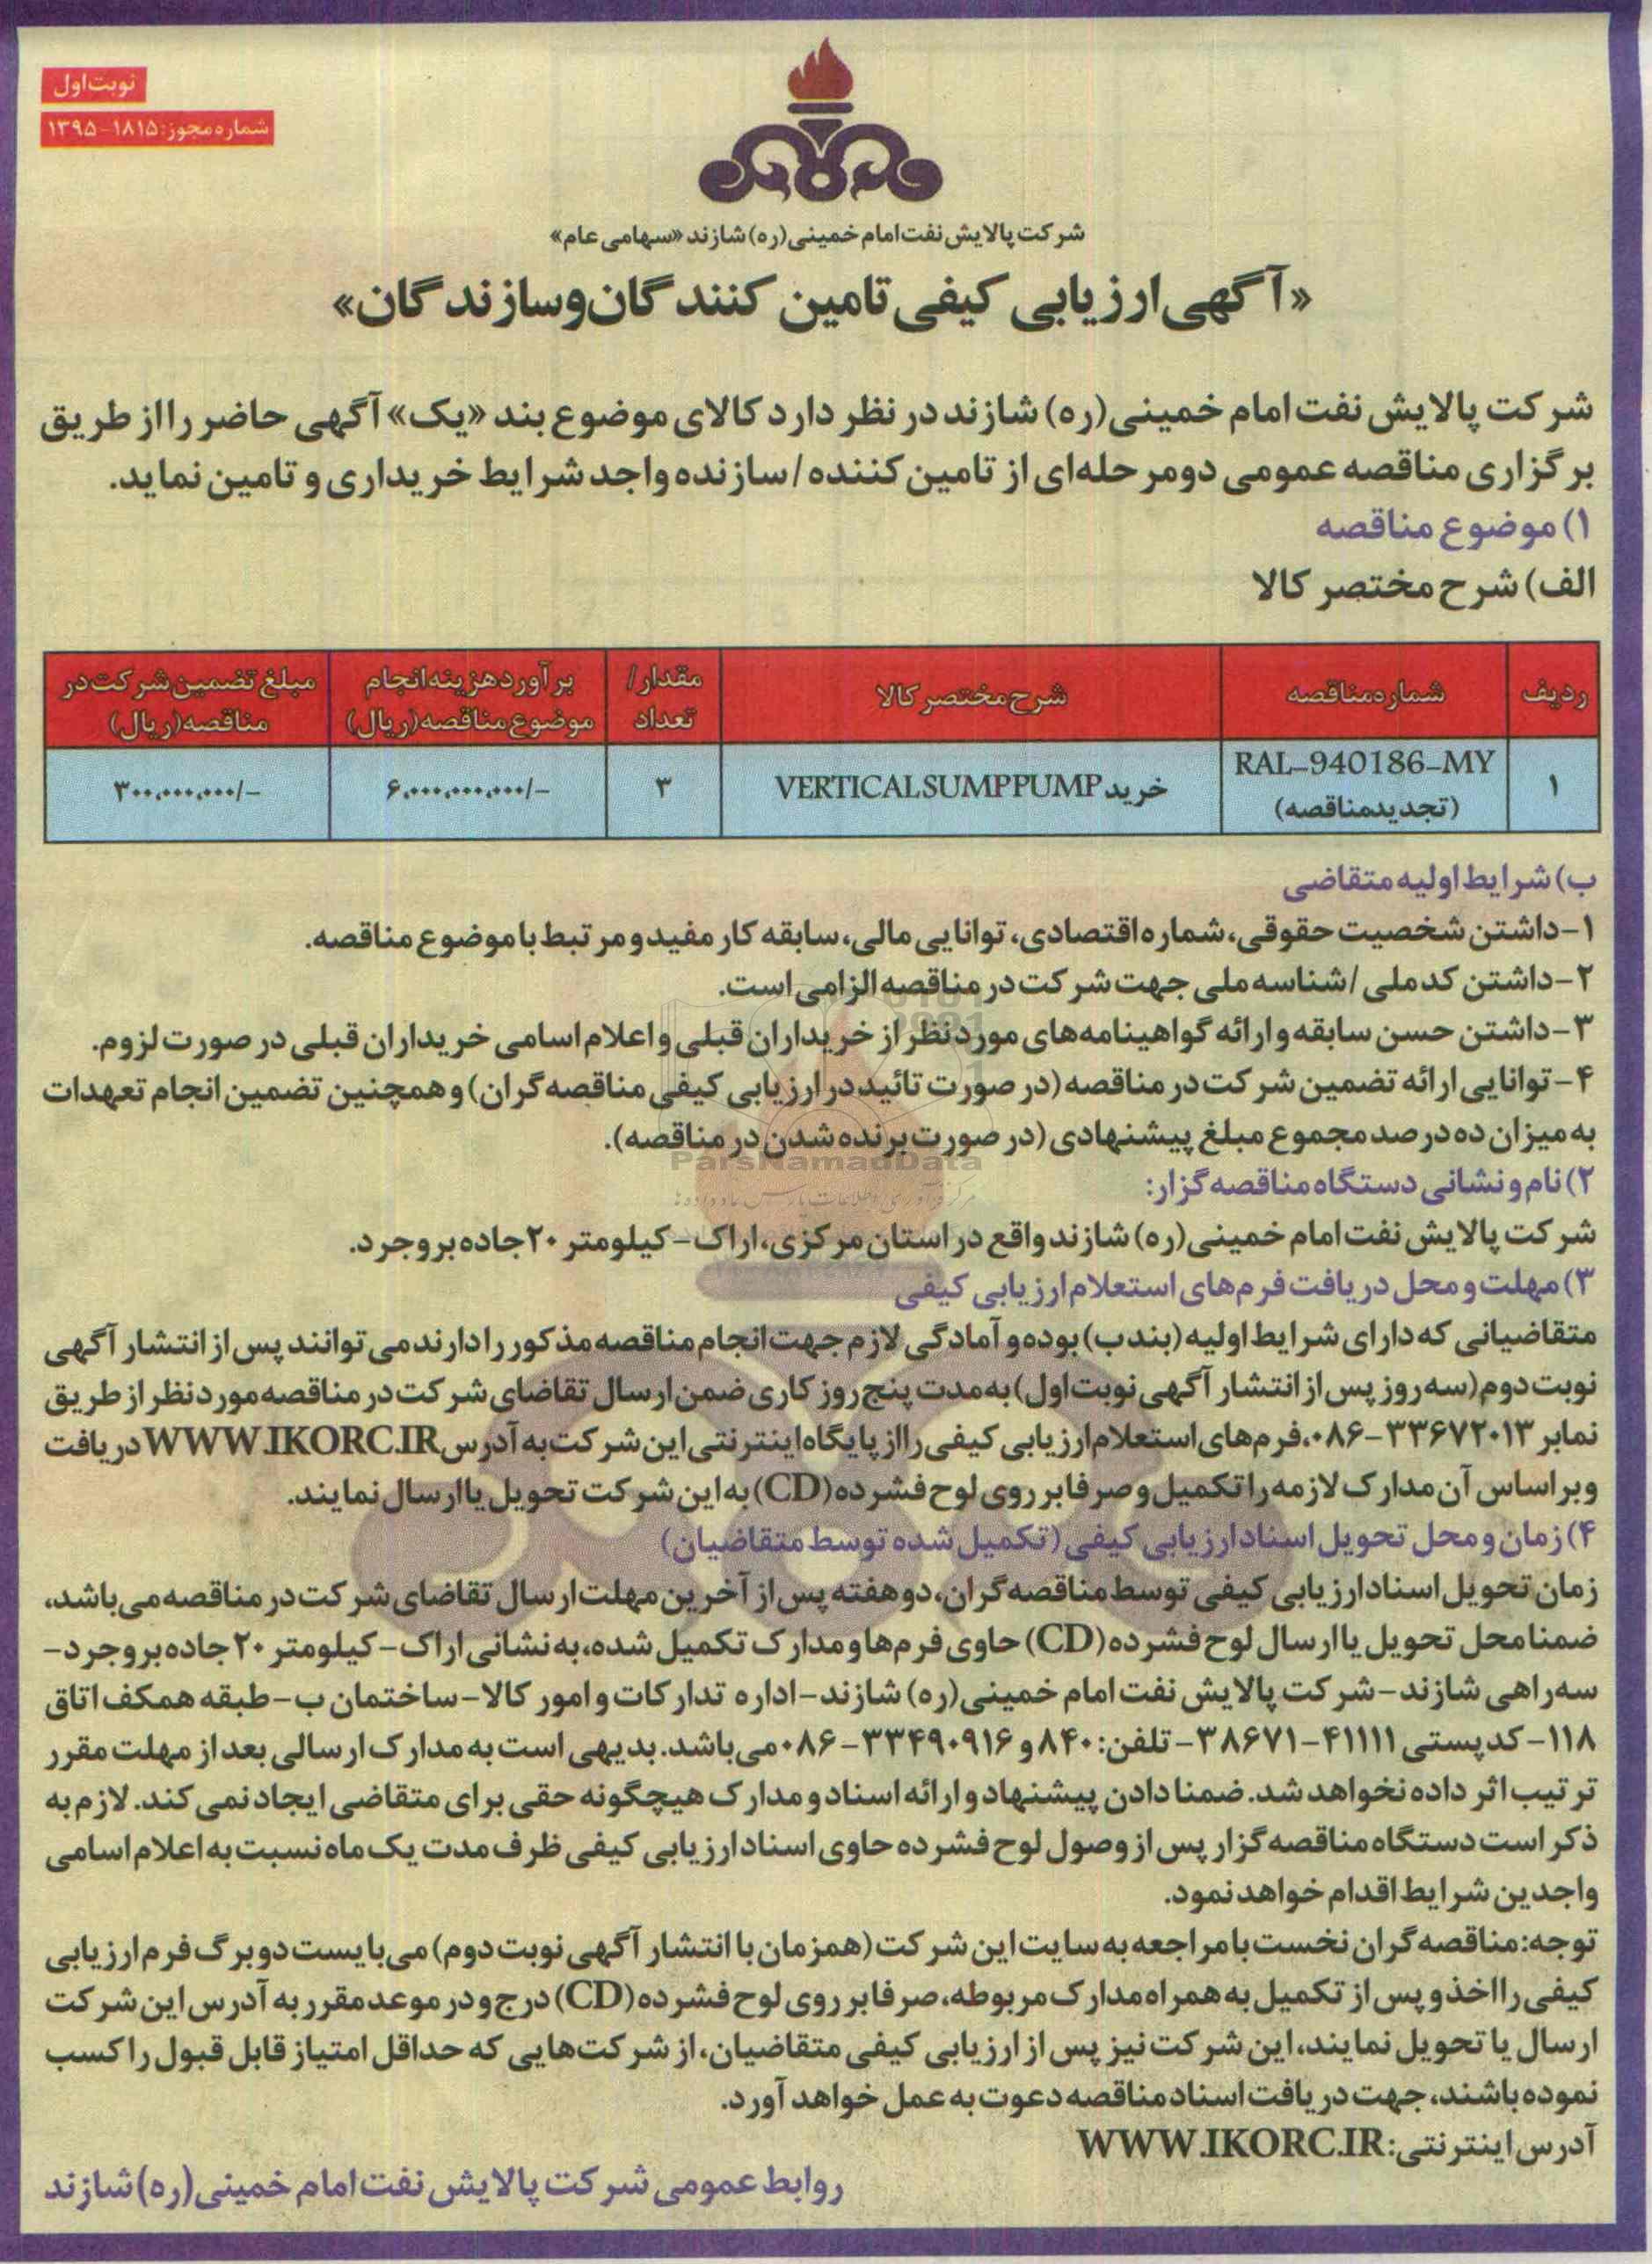 نوبت اول
شماره مجوز: ۱۸۱۵-۱۳۹۵
شرکت پالایش نفت امام خمینی (ره) شازند «سهامی عام»
«آگهی ارزیابی کیفی تامین کنندگان و سازندگان»
شرکت پالایش نفت امام خمینی (ره) شازند در نظر دارد کالای موضوع بند «یک» آگهی حاضر را از طریق
برگزاری مناقصه عمومی دومرحله‌ای از تامین کننده / سازنده واجد شرایط خریداری و تامین نماید.
۱) موضوع مناقصه
الف) شرح مختصر کالا
ردیف شماره مناقصه شرح مختصر کالا مقدار/ تعداد برآورد هزینه انجام موضوع مناقصه (ریال) مبلغ تضمین شرکت در مناقصه (ریال)
۱ RAL-940186-MY (تجدیدمناقصه) خرید VERTICAL SUMP PUMP ۳ ۶،۰۰۰،۰۰۰،۰۰۰/- ۳۰۰،۰۰۰،۰۰۰/-
ب) شرایط اولیه متقاضی
۱- داشتن شخصیت حقوقی، شماره اقتصادی، توانایی مالی، سابقه کار مفید و مرتبط با موضوع مناقصه.
۲- داشتن کد ملی / شناسه ملی جهت شرکت در مناقصه الزامی است.
۳- داشتن حسن سابقه و ارائه گواهینامه‌های مورد نظر از خریداران قبلی و اعلام اسامی خریداران قبلی در صورت لزوم.
۴- توانایی ارائه تضمین شرکت در مناقصه (در صورت تائید در ارزیابی کیفی مناقصه گران) و همچنین تضمین انجام تعهدات
به میزان ده درصد مجموع مبلغ پیشنهادی (در صورت برنده شدن در مناقصه).
ParsNamadData
۲) نام و نشانی دستگاه مناقصه گزار:
شرکت پالایش نفت امام خمینی (ره) شازند واقع در استان مرکزی، اراک- کیلومتر ۲۰ جاده بروجرد.
۳) مهلت و محل دریافت فرم‌های استعلام ارزیابی کیفی
متقاضیانی که دارای شرایط اولیه (بند ب) بوده و آمادگی لازم جهت انجام مناقصه مذکور را دارند می توانند پس از انتشار آگهی
نوبت دوم (سه روز پس از انتشار آگهی نوبت اول) به مدت پنج روز کاری ضمن ارسال تقاضای شرکت در مناقصه مورد نظر از طریق
نمابر ۳۳۶۷۲۰۱۳-۰۸۶، فرم‌های استعلام ارزیابی کیفی را از پایگاه اینترنتی این شرکت به آدرس WWW.IKORC.IR دریافت
و براساس آن مدارک لازمه را تکمیل و صرفا بر روی لوح فشرده (CD) به این شرکت تحویل یا ارسال نمایند.
۴) زمان و محل تحویل اسناد ارزیابی کیفی (تکمیل شده توسط متقاضیان)
زمان تحویل اسناد ارزیابی کیفی توسط مناقصه گران، دو هفته پس از آخرین مهلت ارسال تقاضای شرکت در مناقصه می‌باشد،
ضمنا محل تحویل یا ارسال لوح فشرده (CD) حاوی فرم‌ها و مدارک تکمیل شده، به نشانی اراک- کیلومتر ۲۰ جاده بروجرد-
سه‌راهی شازند- شرکت پالایش نفت امام خمینی (ره) شازند- اداره تدارکات و امور کالا- ساختمان ب- طبقه همکف اتاق
۱۱۸- کدپستی ۴۱۱۱۱-۳۸۶۷۱- تلفن: ۸۴۰ و ۳۳۴۹۰۹۱۶-۰۸۶ می‌باشد. بدیهی است به مدارک ارسالی بعد از مهلت مقرر
ترتیب اثر داده نخواهد شد. ضمنا دادن پیشنهاد و ارائه اسناد و مدارک هیچگونه حقی برای متقاضی ایجاد نمی کند. لازم به
ذکر است دستگاه مناقصه گزار پس از وصول لوح فشرده حاوی اسناد ارزیابی کیفی ظرف مدت یک ماه نسبت به اعلام اسامی
واجدین شرایط اقدام خواهد نمود.
توجه: مناقصه گران نخست با مراجعه به سایت این شرکت (همزمان با انتشار آگهی نوبت دوم) می‌بایست دو برگ فرم ارزیابی
کیفی را اخذ و پس از تکمیل به همراه مدارک مربوطه، صرفا بر روی لوح فشرده (CD) درج و در موعد مقرر به آدرس این شرکت
ارسال یا تحویل نمایند، این شرکت نیز پس از ارزیابی کیفی متقاضیان، از شرکت‌هایی که حداقل امتیاز قابل قبول را کسب
نموده باشند، جهت دریافت اسناد مناقصه دعوت به عمل خواهد آورد.
آدرس اینترنتی: WWW.IKORC.IR
روابط عمومی شرکت پالایش نفت امام خمینی (ره) شازند